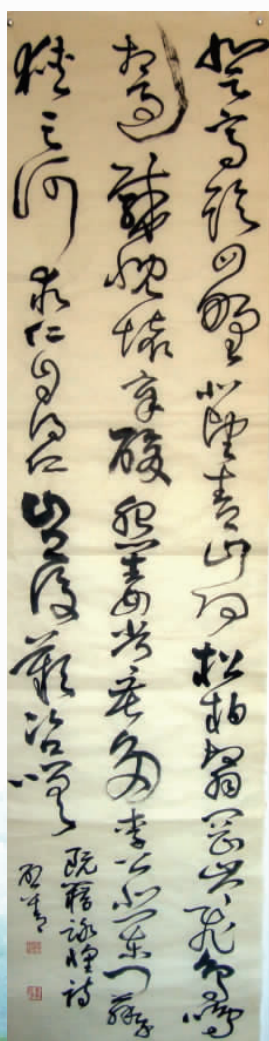 登高臨四野北望青山阿松柏翳岡岑飛鳥鳴
相過感慨懷辛酸怨毒常苦多李公悲東門蘇子
狹三河求仁自得仁豈復歎咨嗟
阮籍詠懷詩